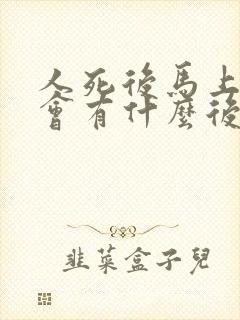 人死後馬上
會有什麼後
韭菜盒子兒